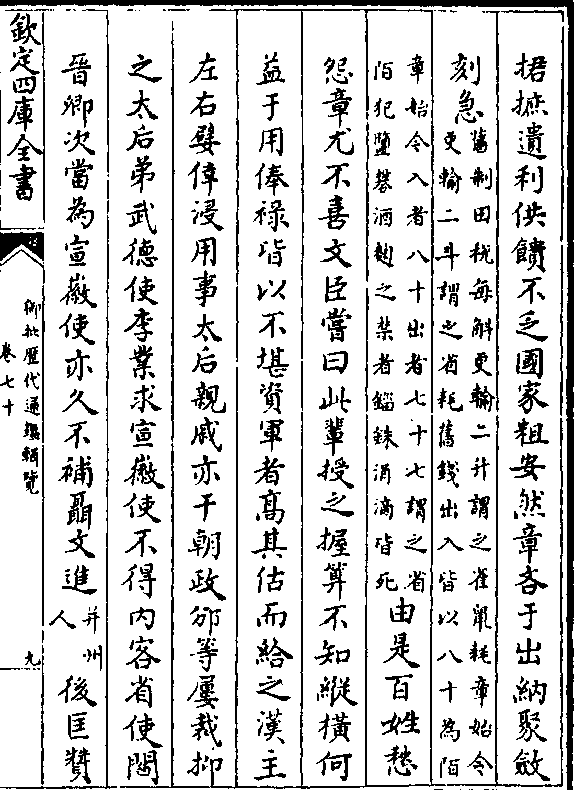 捃摭遺利供饋不乏國家粗安然章吝于出納聚斂
刻急舊制田稅每斛更輸二升謂之雀鼠耗章始令
更輸二斗謂之省耗舊錢出入皆以八十為陌
章始令入者八十出者七十七謂之省
陌犯鹽礬酒麴之禁者錙銖涓滴皆死由是百姓愁
怨章尤不喜文臣嘗曰此輩授之握算不知縱橫何
益于用俸祿皆以不堪資軍者高其估而給之漢主
左右嬖倖浸用事太后親戚亦干朝政邠等屢裁抑
之太后弟武德使李業求宣徽使不得内客省使閻
晉卿次當為宣徽使亦久不補聶文進并州
人後匡贊
欽定四庫全書
御批歷代通鑑輯覽
卷七十
九